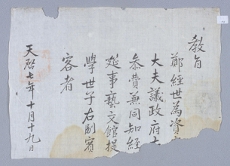 教旨
鄭經世爲資
大夫議政府右
參贊兼同知經
筵事藝文館提
學世子右副賓
客者
天啓七年十月十九日